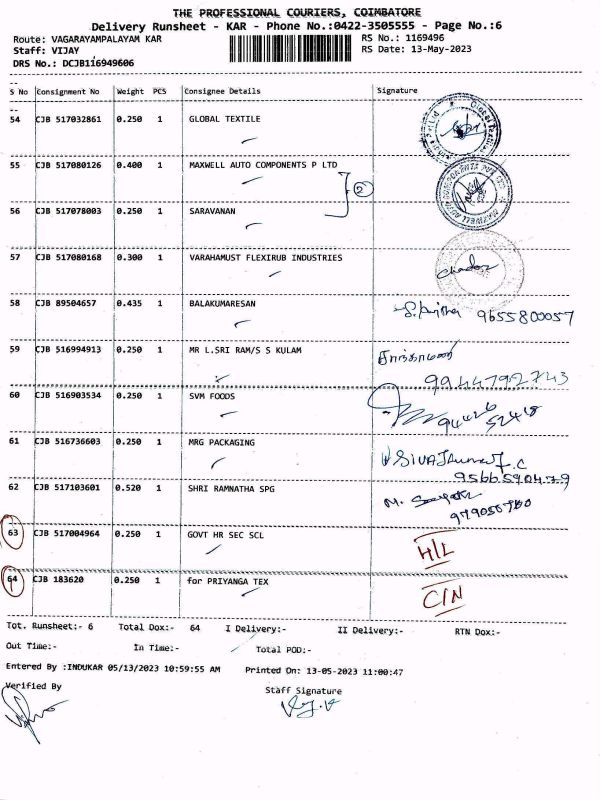 THE PROFESSIONAL COURIERS, COIMBATORE
Delivery Runsheet - KAR - Phone No.:0422-3505555 - Page No.:6
Route: VAGARAYAMPALAYAM KAR
RS No.: 1169496
Staff: VIJAY
RS Date: 13-May-2023
DRS No.: DCJB116949606
S No Consignment No Weight PCS Consignee Details Signature
54 CJB 517032861 0.250 1 GLOBAL TEXTILE
55 CJB 517080126 0.400 1 MAXWELL AUTO COMPONENTS P LTD
2
56 CJB 517078003 0.250 1 SARAVANAN
57 CJB 517080168 0.300 1 VARAHAMUST FLEXIRUB INDUSTRIES
58 CJB 89504657 0.435 1 BALAKUMARESAN
9655800057
59 CJB 516994913 0.250 1 MR L.SRI RAM/S S KULAM
9944792743
60 CJB 516903534 0.250 1 SVM FOODS
94426
52418
61 CJB 516736603 0.250 1 MRG PACKAGING
62 CJB 517103601 0.520 1 SHRI RAMNATHA SPG
63 CJB 517004964 0.250 1 GOVT HR SEC SCL
H/L
64 CJB 183620 0.250 1 for PRIYANGA TEX
C/N
Tot. Runsheet:- 6 Total Dox:- 64 I Delivery:- II Delivery:- RTN Dox:-
Out Time:- In Time:- Total POD:-
Entered By :INDUKAR 05/13/2023 10:59:55 AM Printed On: 13-05-2023 11:00:47
Verified By
Staff Signature